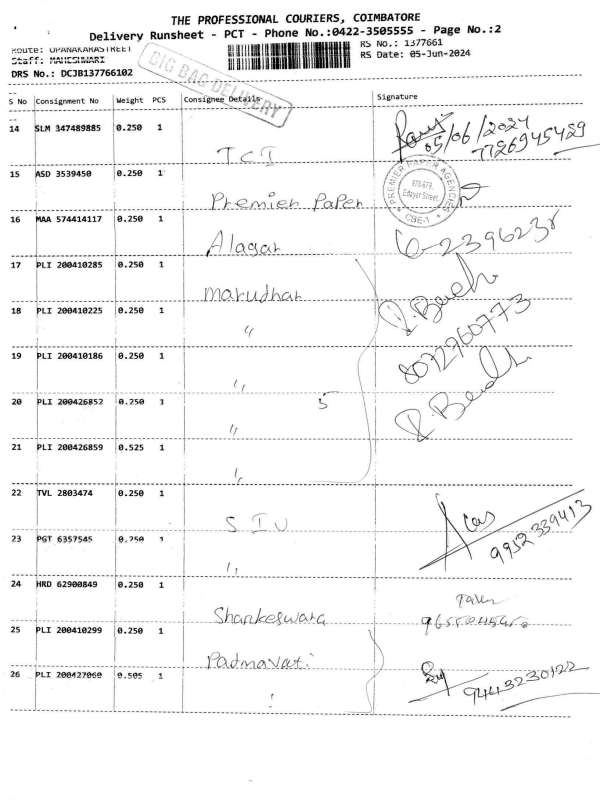 THE PROFESSIONAL COURIERS, COIMBATORE
Delivery Runsheet - PCT - Phone No.:0422-3505555 - Page No.:2
Route: OPANAKARASTREET
RS No.: 1377661
Staff: MAHESHWARI
RS Date: 05-Jun-2024
DRS No.: DCJB137766102
BIG BAG DELIVERY
S No Consignment No Weight PCS Consignee Details Signature
14 SLM 347489885 0.250 1
05/06/2024
7726945429
TCI
15 ASD 3539450 0.250 1
PREMIER PAPER AGENCIES
Edayar Street
CBE-1
Premier Paper
16 MAA 574414117 0.250 1
Alagar
17 PLI 200410285 0.250 1
Marudhar
18 PLI 200410225 0.250 1
"
8072760773
19 PLI 200410186 0.250 1
"
20 PLI 200426852 0.250 1
5
"
21 PLI 200426859 0.525 1
"
22 TVL 2803474 0.250 1
SIU
9952339413
23 PGT 6357545 0.250 1
"
24 HRD 62900849 0.250 1
Shankeswara
25 PLI 200410299 0.250 1
Padmavati
26 PLI 200427060 0.505 1
9443230122